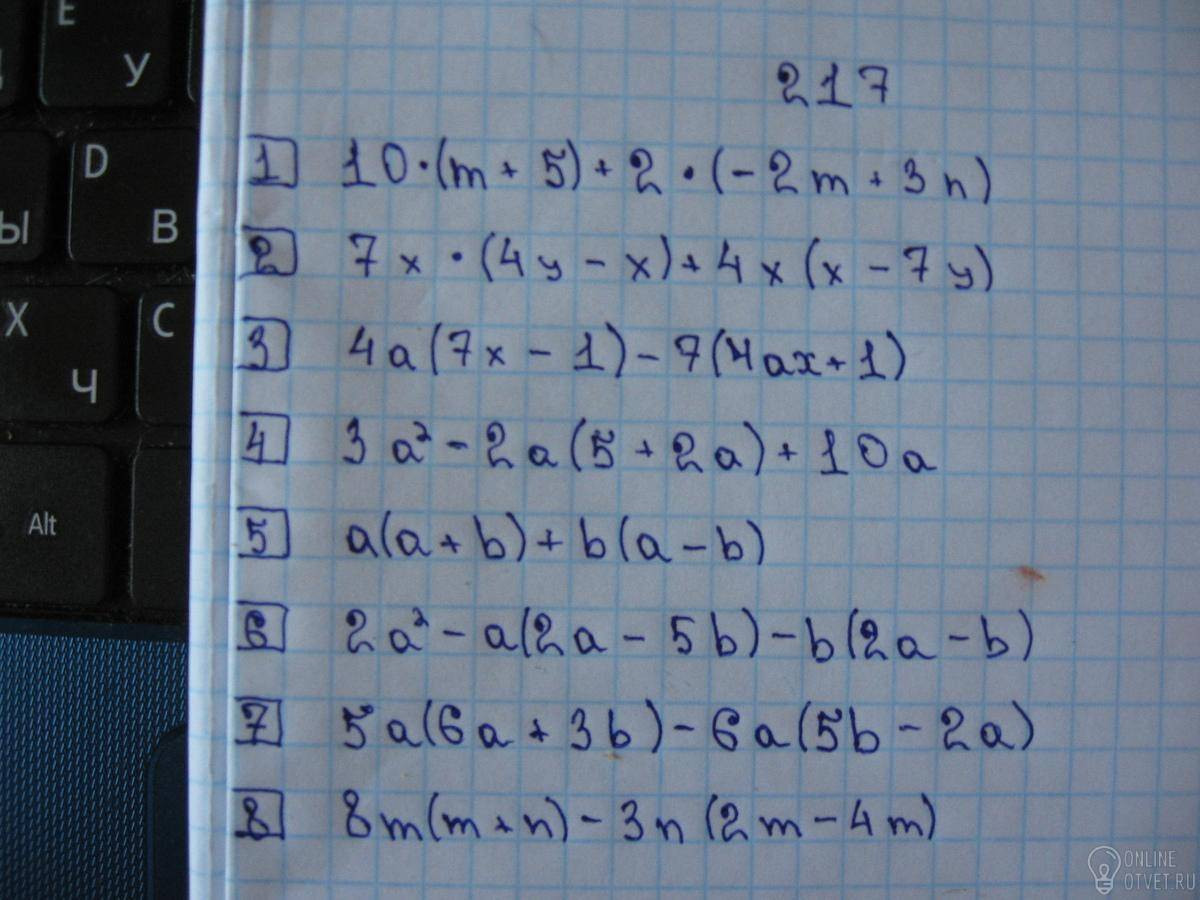 E
У
217
D
В
Ы
X
Ч
C
Alt
1 10·(m + 5) + 2·(-2m + 3n)
2 7x·(4y - x) + 4x(x - 7y)
3 4a(7x - 1) - 7(4ax + 1)
4 3a² - 2a(5 + 2a) + 10a
5 a(a + b) + b(a - b)
6 2a² - a(2a - 5b) - b(2a - b)
7 5a(6a + 3b) - 6a(5b - 2a)
8 8m(m + n) - 3n(2m - 4m)
ONLINE
OTVET.RU